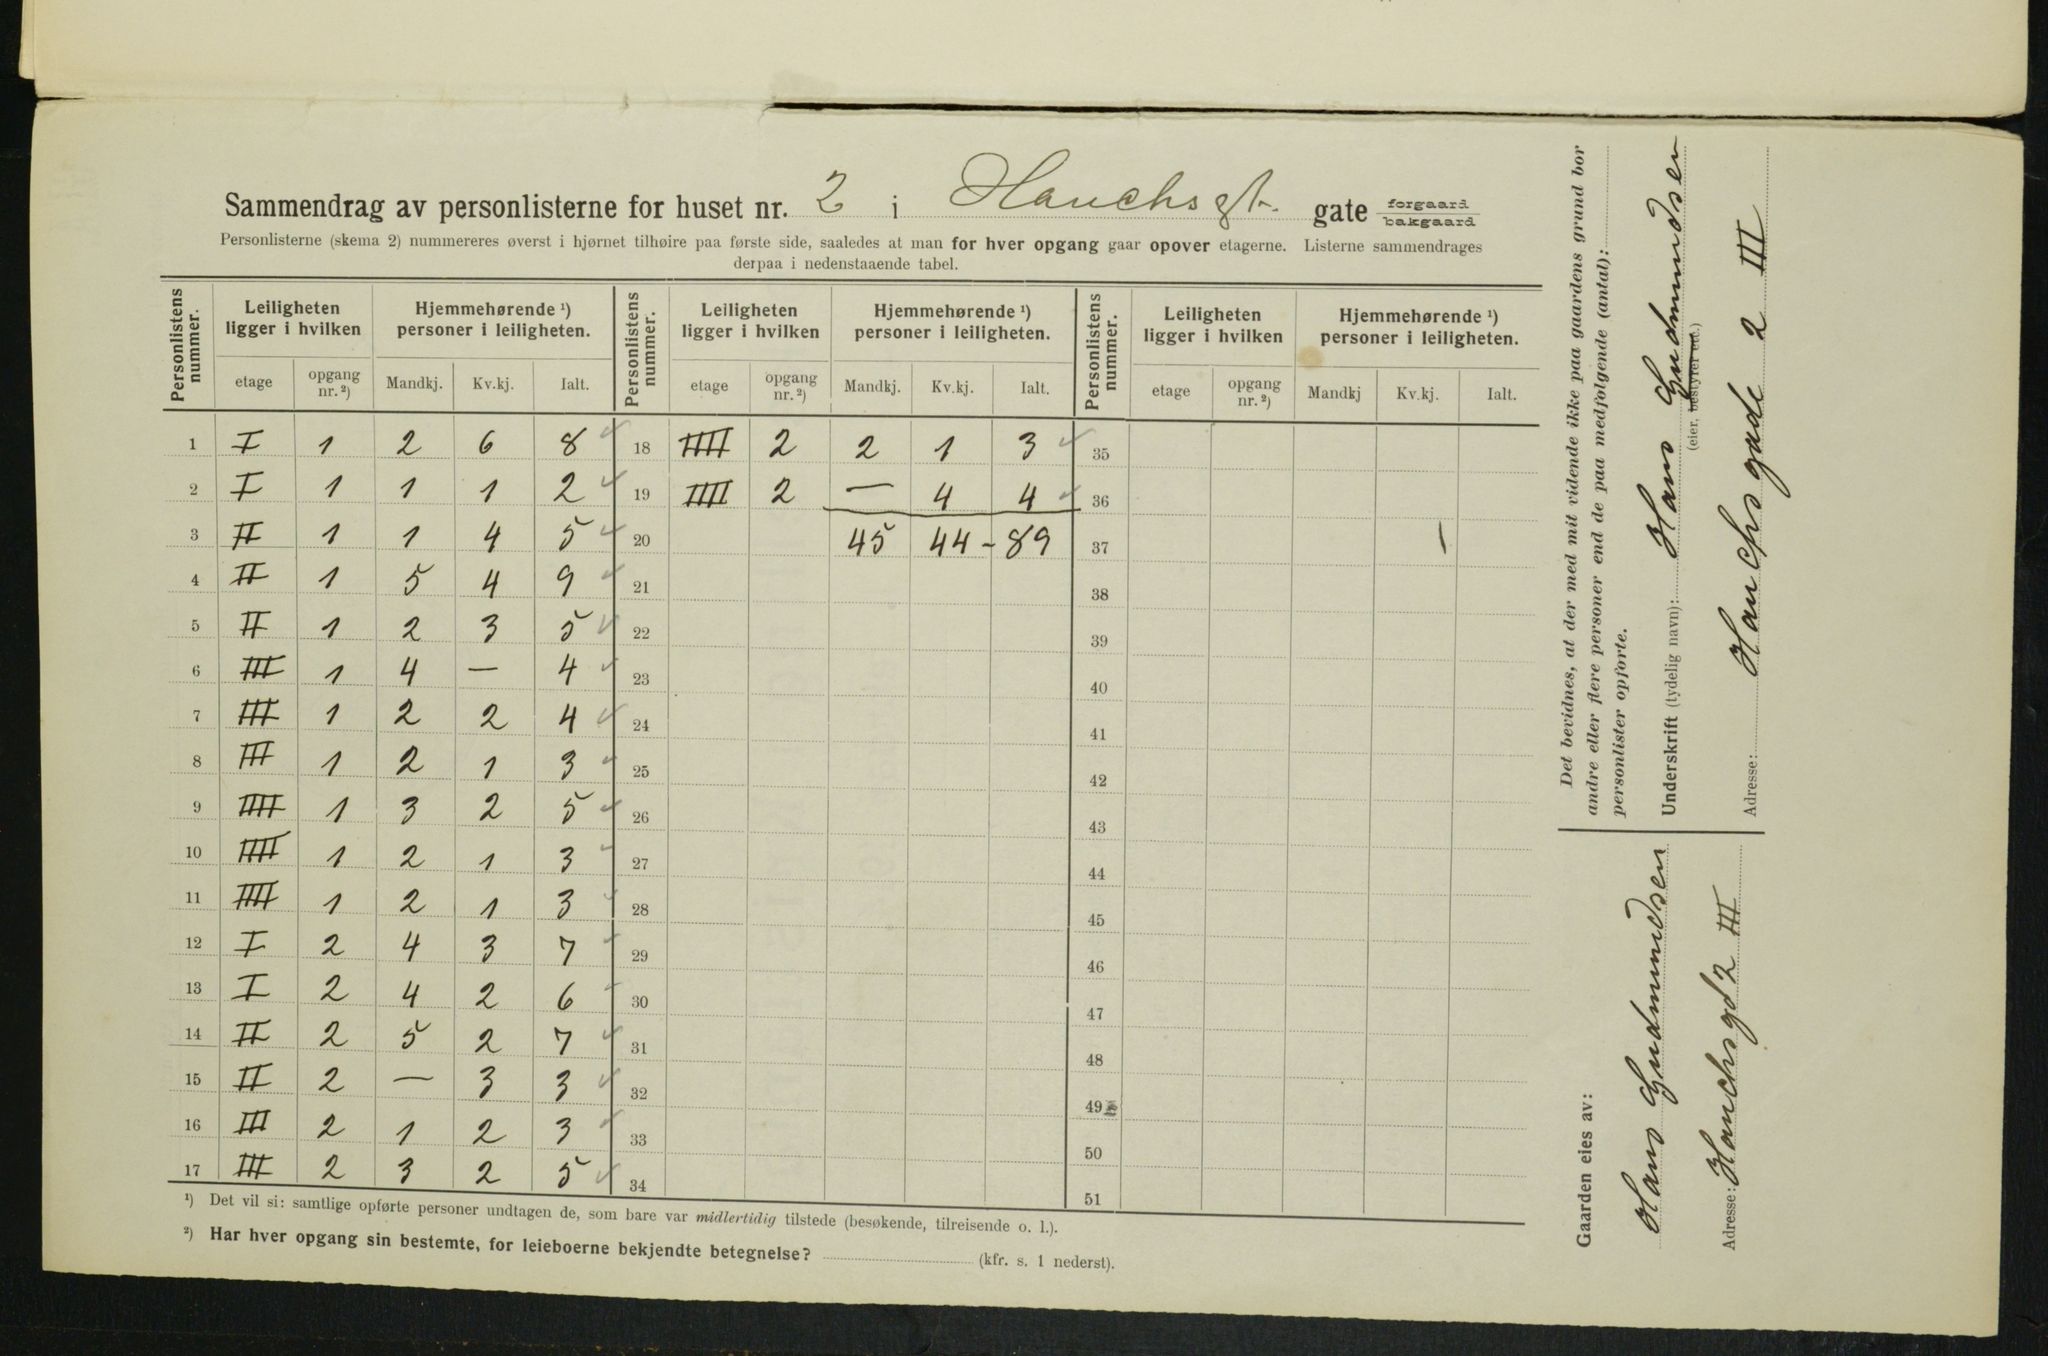 Sammendrag av personlisterne for huset nr. 2 i Hauchsgt. gate forgaard bakgaard
Personlisterne (skema 2) nummereres øverst i hjørnet tilhøire paa første side, saaledes at man for hver opgang gaar opover etagerne. Listerne sammendrages
derpaa i nedenstaaende tabel.
Personlistens nummer. Leiligheten ligger i hvilken Hjemmehørende ¹) personer i leiligheten. Personlistens nummer. Leiligheten ligger i hvilken Hjemmehørende ¹) personer i leiligheten. Personlistens nummer. Leiligheten ligger i hvilken Hjemmehørende ¹) personer i leiligheten.
etage opgang nr. ²) Mandkj. Kv.kj. Ialt. etage opgang nr. ²) Mandkj. Kv.kj. Ialt. etage opgang nr. ²) Mandkj Kv.kj. Ialt.
1 I 1 2 6 8 ✓ 18 IIII 2 2 1 3 ✓ 35
2 I 1 1 1 2 ✓ 19 IIII 2 — 4 4 ✓ 36
3 II 1 1 4 5 ✓ 20 45 44 - 89 37
4 II 1 5 4 9 ✓ 21 38
5 II 1 2 3 5 ✓ 22 39
6 III 1 4 — 4 ✓ 23 40
7 III 1 2 2 4 ✓ 24 41
8 III 1 2 1 3 ✓ 25 42
9 IIII 1 3 2 5 ✓ 26 43
10 IIII 1 2 1 3 ✓ 27 44
11 IIII 1 2 1 3 ✓ 28 45
12 I 2 4 3 7 ✓ 29 46
13 I 2 4 2 6 ✓ 30 47
14 II 2 5 2 7 ✓ 31 48
15 II 2 — 3 3 ✓ 32 49
16 III 2 1 2 3 ✓ 33 50
17 III 2 3 2 5 ✓ 34 51
¹) Det vil si: samtlige opførte personer undtagen de, som bare var midlertidig tilstede (besøkende, tilreisende o. l.).
²) Har hver opgang sin bestemte, for leieboerne bekjendte betegnelse? (kfr. s. 1 nederst).
Det bevidnes, at der med mit vidende ikke paa gaardens grund bor
andre eller flere personer end de paa medfølgende (antal):
personlister opførte.
Underskrift (tydelig navn): Hans Gudmundsen
(eier, bestyrer etc.)
Adresse: Hauchsgade 2 III
Gaarden eies av:
Hans Gudmundsen
Adresse: Hauchsgd 2 III